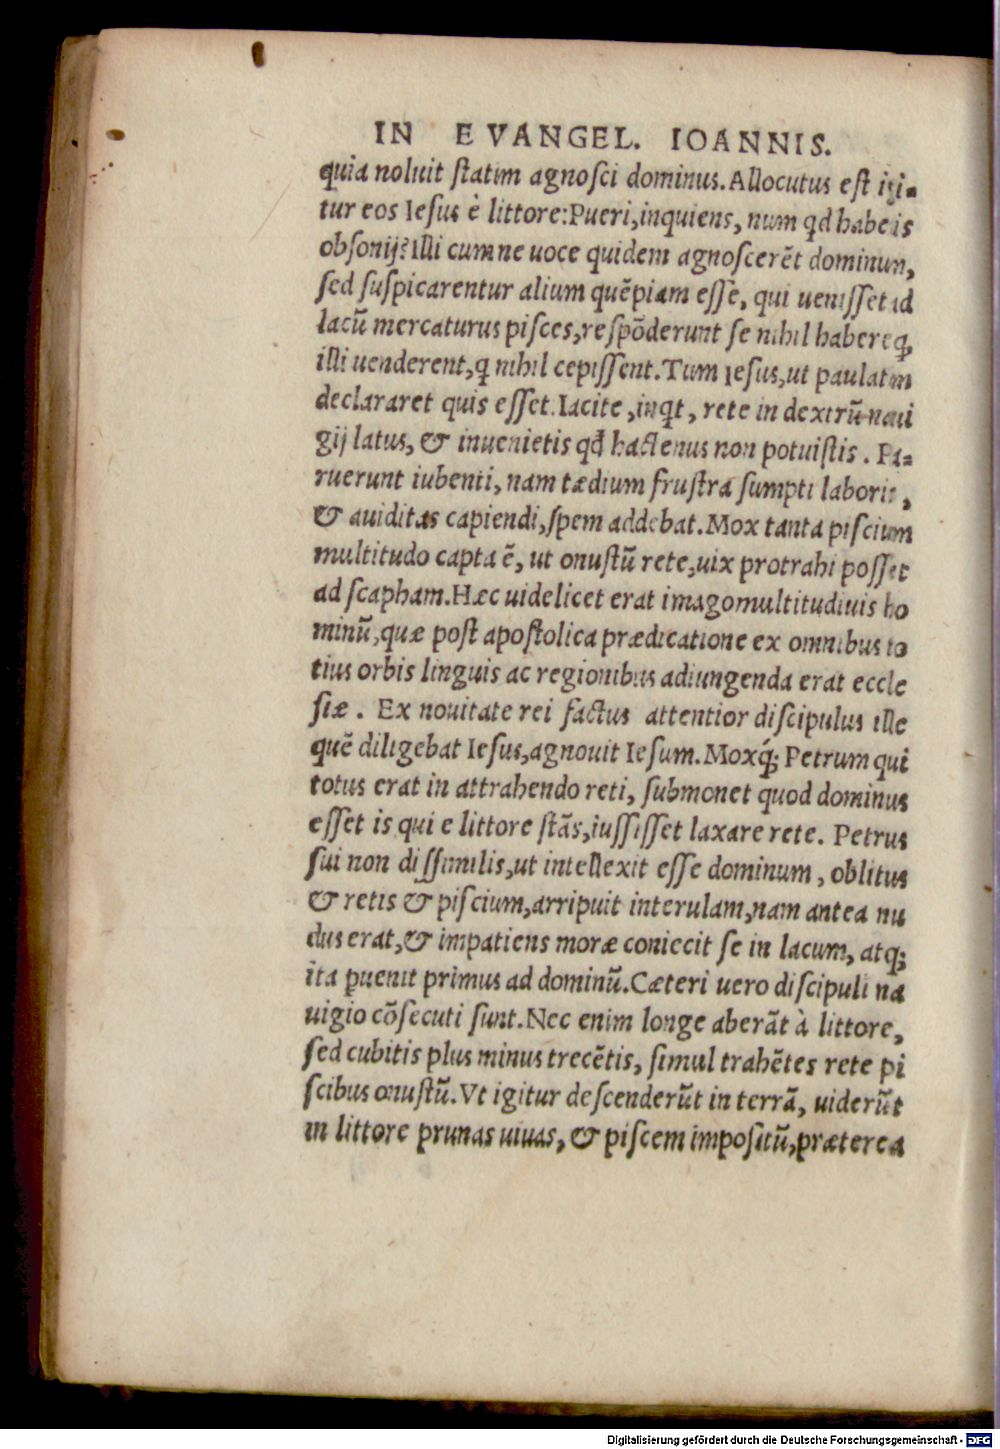 IN EVANGEL. IOANNIS.
quia noluit ſtatim agnoſci dominus. Allocutus eſt igi-
tur eos Ieſus è littore: Pueri, inquiens, num qd habetis
obſonij? Illi cum ne uoce quidem agnoſcerēt dominum,
ſed ſuſpicarentur alium quēpiam eſſe, qui ueniſſet ad
lacū mercaturus piſces, reſpōderunt ſe nihil habere q̨
illi uenderent, q nihil cepiſſent. Tum Ieſus, ut paulatim
declararet quis eſſet. Iacite, inqt, rete in dextrū naui
gij latus, & inuenietis qđ hactenus non potuiſtis. Pa-
ruerunt iubenti, nam tædium fruſtra ſumpti laboris,
& auiditas capiendi, ſpem addebat. Mox tanta piſcium
multitudo capta ē, ut onuſtū rete, uix protrahi poſſet
ad ſcapham. Hæc uidelicet erat imago multitudinis ho
minū, quæ poſt apoſtolica prædicatione ex omnibus to
tius orbis linguis ac regionibus adiungenda erat eccle
ſiæ. Ex nouitate rei factus attentior diſcipulus ille
quē diligebat Ieſus, agnouit Ieſum. Moxq́; Petrum qui
totus erat in attrahendo reti, ſubmonet quod dominus
eſſet is qui e littore ſtās, iuſſiſſet laxare rete. Petrus
ſui non diſſimilis, ut intellexit eſſe dominum, oblitus
& retis & piſcium, arripuit interulam, nam antea nu
dus erat, & impatiens moræ coniecit ſe in lacum, atq;
ita ꝑuenit primus ad dominū. Cæteri uero diſcipuli na
uigio cōſecuti ſunt. Nec enim longe aberāt à littore,
ſed cubitis plus minus trecētis, ſimul trahētes rete pi
ſcibus onuſtū. Vt igitur deſcenderūt in terrā, uiderūt
in littore prunas uiuas, & piſcem impoſitū, præterea
Digitalisierung gefördert durch die Deutsche Forschungsgemeinschaft - DFG